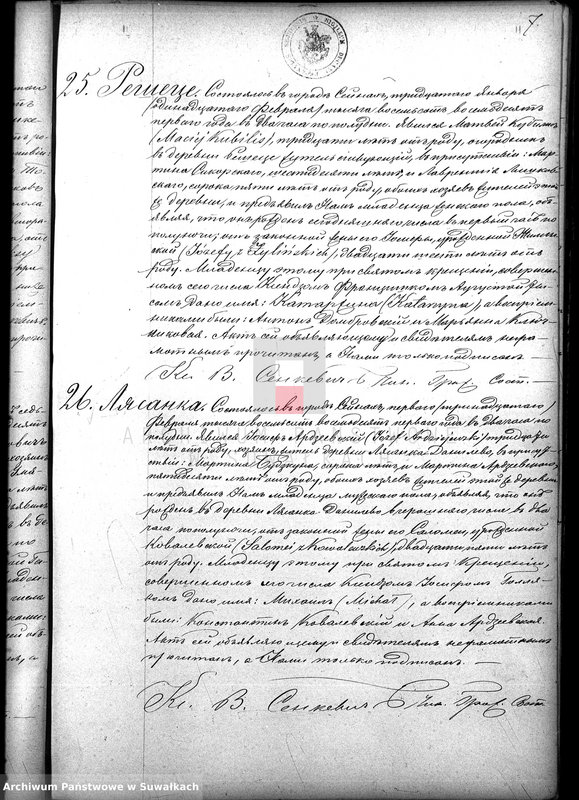 7.
25. Решеце. Состоялось въ городѣ Сейнахъ, тридцатаго Января
/одинадцатаго Февраля/ тысяча восемьсотъ восемьдесятъ
перваго года въ два часа по полудни. Явился Матвѣй Кубилисъ
(Maciej Kubilis), тридцати лѣтъ отъ роду, огородникъ
въ деревни Решеце жительствующій, въ присутствіи: Мар-
тина Сикорскаго, шестидесяти лѣтъ, и Лаврентія
скаго, сорока пяти лѣтъ отъ роду, обоихъ хозяевъ жителей этой
же деревни, и предъявилъ Намъ младенца женскаго пола, объ-
являя, что онъ рожденъ сегодняшняго числа въ первый часъ по
полуночи, отъ законной жены его Іосефы, урожденной Жилин-
ской (Józefy z Żylińskich), двадцати шести лѣтъ отъ
роду. Младенцу этому при святомъ крещеніи, соверше-
номъ сего числа Ксендзомъ Францишкомъ Августой
дано имя: Катаржина (Katarzyna), а воспріем-
никами были: Антонъ Домбровскій и Марьянна
никовая. Актъ сей объявляющему и свидѣтелямъ негра-
мотнымъ прочитанъ, а Нами только подписанъ. —
Кс. В. Сенкевичъ Чин. Граж. Сост.
26. Лясанка. Состоялось въ городѣ Сейнахъ, перваго /тринадцатаго/
Февраля тысяча восемьсотъ восемьдесятъ перваго года въ два часа по
полудни. Явился Іосифъ Ардзеевскій (Józef) тридцати
лѣтъ отъ роду, хозяинъ, житель деревни Лясанка Данилово, въ присут-
ствіи: Мартина, сорока лѣтъ и Мартина Ардзеевскаго,
пятидесяти лѣтъ отъ роду, обоихъ хозяевъ жителей этой же деревни
и предъявилъ Намъ младенца мужскаго пола, объявляя, что онъ
рожденъ въ деревни Лясанка Данилово вчерашняго числа въ два
часа пополуночи, отъ законной жены его Саломеи, урожденной
Ковалевской (Salomei z Kowalewskich), двадцати пяти лѣтъ
отъ роду. Младенцу этому при святомъ Крещеніи,
совершенномъ сего числа Ксендзомъ Іосифомъ
дано имя: Михаилъ (Michał), а воспріемниками
были: Константинъ Ковалевскій и Анна Ардзеевская.
Актъ сей объявляющему и свидѣтелямъ неграмотнымъ
прочитанъ, а Нами только подписанъ. —
Кс. В. Сенкевичъ Чин. Граж. Сост.
Archiwum Państwowe w Suwałkach